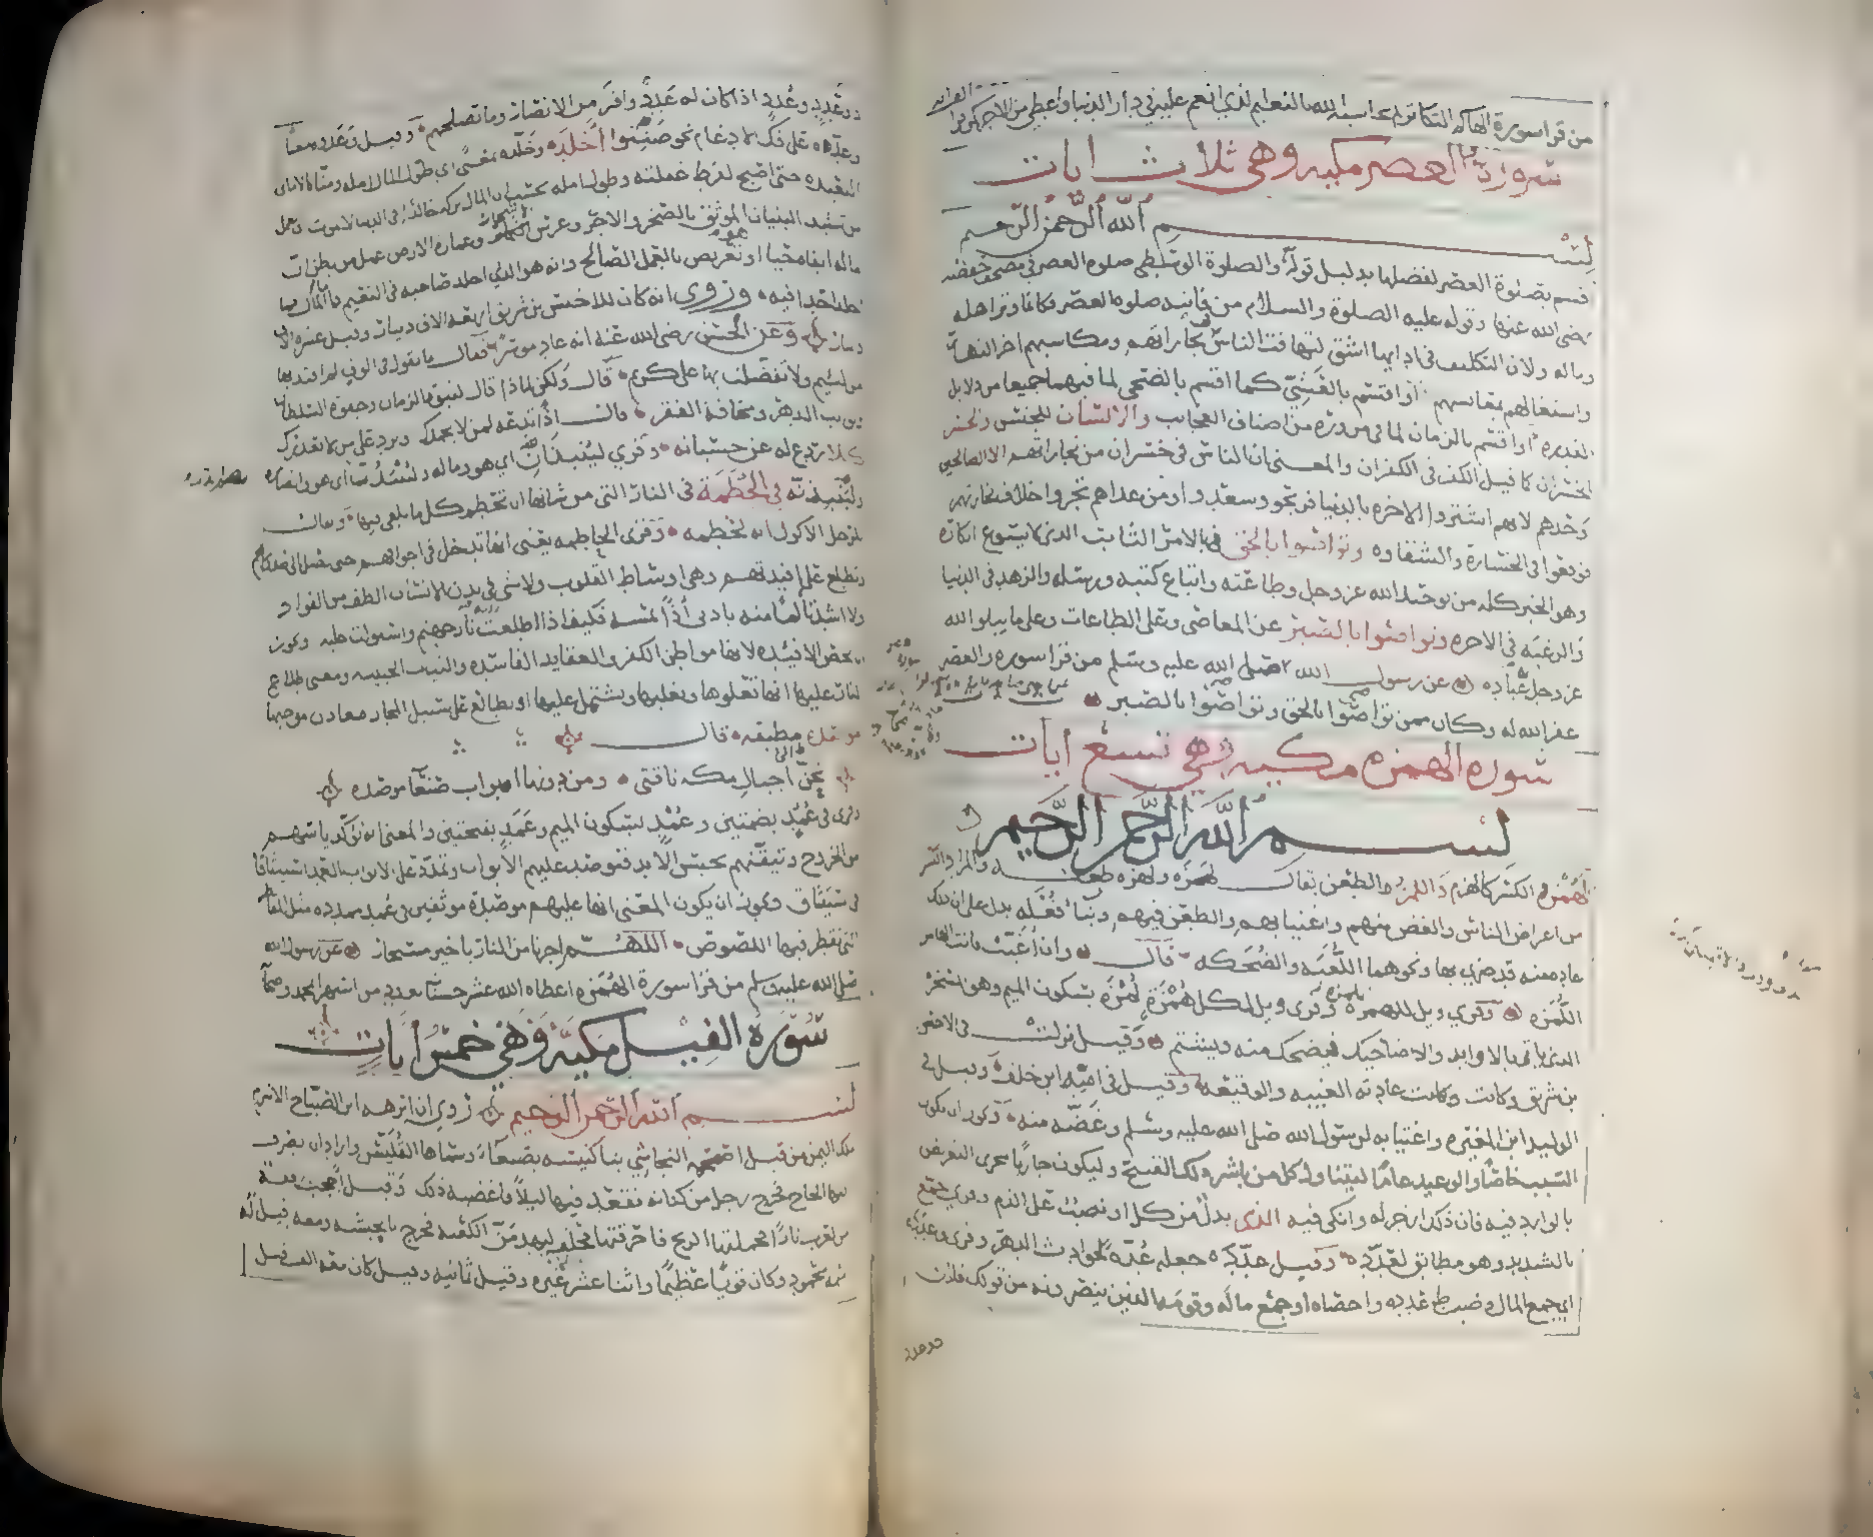 من قرا سورة الهاكم التكاثر لم يحاسبه الله بالنعيم الذي انعم عليه في دار الدنيا واعطي من الاجر كانما قرا
سورة العصر مكيه وهي ثلاث ايات
بسم الله الرحمن الرحيم
اقسم بصلوة العصر لفضلها بدليل قوله والصلوة الوسطى صلوة العصر في مصحف حفصه
رضى الله عنها وقوله عليه الصلوة والسلام من فاتته صلوه العصر فكانما وتر اهله
وماله ولان التكليف في ادايها اشق لتهافت الناس في تجاراتهم ومكاسبهم اخر النهار
واشتغالهم بمعايشهم او اقسم بالعشي كما اقسم بالضحى لما فيهما جميعا من دلايل
القدره او اقسم بالزمان لما في مروره من اصناف العجايب والانسان للجنس والخسر
الخسران كما قيل الكفر في الكفران والمعنى ان الناس في خسران من تجاراتهم الا الصالحين
وحدهم لانهم اشتروا الاخره بالدنيا فربحوا وسعدوا ومن عداهم تجروا خلاف تجارتهم
فوقعوا في الخساره والشقاوه وتواصوا بالحق بالامر الثابت الذي لا يسوغ انكاره
وهو الخير كله من توحيد الله عز وجل وطاعته واتباع كتبه ورسله والزهد في الدنيا
والرغبه في الاخره وتواصوا بالصبر عن المعاصي وعلى الطاعات وعلى ما يبلو الله
عز وجل عباده عن رسول الله صلى الله عليه وسلم من قرا سوره والعصر
غفر الله له وكان ممن تواصوا بالحق وتواصوا بالصبر
سوره الهمزه مكيه وهي تسع ايات
بسم الله الرحمن الرحيم
الهمز الكسر كالهزم واللمز الطعن يقال لمزه ولهزه طعنه والمراد الكسر
من اعراض الناس والغض منهم واغتيابهم والطعن فيهم وبنا فعله يدل على ان ذلك
عاده منه قد ضري بها ونحوهما اللعنه والضحكه قال وان اغيب فانت الهامز
اللمزه وقري ويل للهمزه وقري ويل لكل همزة لمزة بسكون الميم وهو المسخره
الذي ياتي بالاوابد والاضاحيك فيضحك منه ويشتم وقيل نزلت في الاخنس
بن شريق وكانت وكانت عادته الغيبه والوقيعه وقيل في اميه ابن خلف وقيل في
الوليد ابن المغيره واغتيابه لرسول الله صلى الله عليه وسلم وغضه منه ويجوز ان يكون
السبب خاصا والوعيد عاما ليتناول كل من باشر ذلك القبيح وليكون جاريا مجرى التعريض
بالوارد فيه فان ذلك ازجر له وانكى فيه الذي بدل من كل او نصب على الذم وقري جمع
بالتشديد وهو مطابق لعدده وقيل عدده جعله عُده لحوادث الدهر وقري وعدده
اي جمع المال وضبط عدده واحصاه او جمع ماله وقومه الذين ينصرونه من قولك فلان
ذو عَدد وعُدد اذا كان له عدد وافر من الانصار وما يصلحهم وقيل وعدده معناه
وعده على فك الادغام نحو ضننوا اخلده وخلده بمعنى اي طول المال امله ومناه الاماني
البعيده حتى اصبح لفرط غفلته وطول امله يحسب ان المال تركه خالدا في الدنيا لا يموت او يعمل
من تشييد البنيان الموثق بالصخر والاجر وغرس الاشجار وعمارة الارض عمل من يظن ان
ماله ابقاه حيا او هو تعريض بالعمل الصالح وانه هو الذي اخلد صاحبه في النعيم فاما المال فما
اخلد احدا فيه وروي انه كان للاخنس بن شريق اربعه الاف دينار وقيل عشره الاف
وعن الحسن رضى الله عنه انه عاد موسرا فقال ما تقول في الوف لم افتد بها
من لئيم ولا تفضلت بها على كريم قال ولكن لماذا قال لنبوة الزمان وجفوة السلطان
ونوايب الدهر ومخافة الفقر قال اذا تدعه لمن لا يحمدك وترد على من لا يعذرك
كلا ردع له عن حسبانه وقري لينبذان اي هو وماله ولينبذن اي هو وانصاره
ولينبذنه في الحطمة في النار التي من شانها ان تحطم كل ما يلقى فيها ويقال
للرجل الاكول انه لحطمه وقري الحاطمه يعني انها تدخل في اجوافهم حتى تصل الى صدورهم
وتطلع على افيدتهم وهي اوساط القلوب ولا شي في بدن الانسان الطف من الفواد
ولا اشد تالما منه بادنى اذى يمسه فكيف اذا اطلعت عليه نار جهنم واستولت عليه ويجوز
ان يخص الافيده لانها مواطن الكفر والعقايد الفاسده والنيات الخبيثه ومعنى اطلاع
النار عليها انها تعلوها وتغلبها وتشتمل عليها او تطالع على سبيل المجاز معادن موجبها
موصده مطبقه قال
تحن الى اجبال مكه ناقتي ومن دونها ابواب صنعا موصده
وقري في عُمُد بضمتين وعُمْد بسكون الميم وعَمَد بفتحتين والمعنى انه يوكد ياسهم
من الخروج وتيقنهم بحبس الابد فتوصد عليهم الابواب وتمدد على الابواب العمد استيثاقا
في استيثاق ويجوز ان يكون المعنى انها عليهم موصدة موثقين في عمد ممدده مثل المقاطر
التي تقطر فيها اللصوص اللهم اجرنا من النار يا خير مستجار عن رسول الله
صلى الله عليه وسلم من قرا سورة الهمزه اعطاه الله عشر حسنات بعدد من استهزا بمحمد واصحابه
سورة الفيل مكية وهي خمس ايات
بسم الله الرحمن الرحيم روي ان ابرهه ابن الصباح الاشرم
ملك اليمن من قبل اصحمه النجاشي بنا كنيسه بصنعاء وسماها القليس واراد ان يصرف
اليها الحاج فخرج رجل من كنانه فقعد فيها ليلا فاغضبه ذلك وقيل اججت رفقه
من العرب نارا فحملتها الريح فاحرقتها فحلف ليهدمن الكعبه فخرج بالحبشه ومعه فيل له
اسمه محمود وكان قويا عظيما واثنا عشر غيره وقيل ثمانيه وقيل كان معه الف فيل